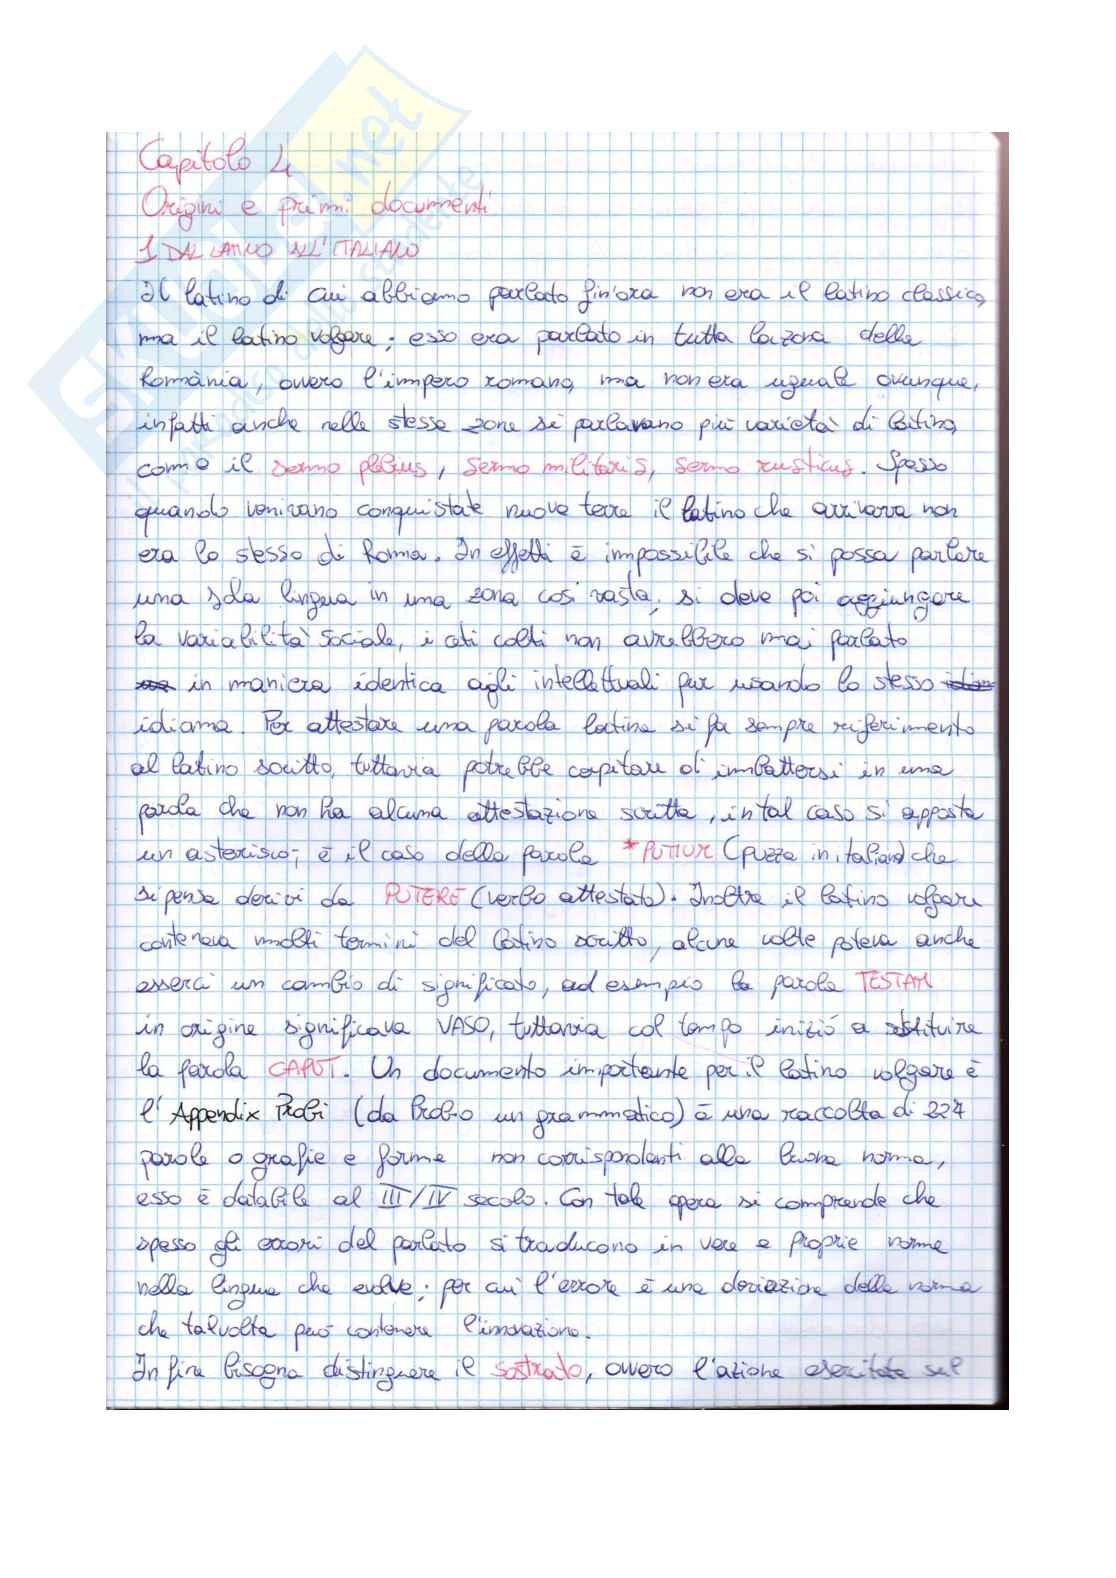 Capitolo 4
Origini e primi documenti
1 DAL LATINO ALL'ITALIANO
Il latino di cui abbiamo parlato fin'ora non era il latino classico,
ma il latino volgare; esso era parlato in tutta la zona della
Romània, ovvero l'impero romano, ma non era uguale ovunque,
infatti anche nelle stesse zone si parlavano più varietà di latino,
come il sermo plebius, sermo militaris, sermo rusticus. Spesso
quando venivano conquistate nuove terre il latino che arrivava non
era lo stesso di Roma. In effetti è impossibile che si possa parlare
una sola lingua in una zona così vasta, si deve poi aggiungere
la variabilità sociale, i ceti colti non avrebbero mai parlato
in maniera identica agli intellettuali pur usando lo stesso
idioma. Per attestare una parola latina si fa sempre riferimento
al latino scritto, tuttavia potrebbe capitare di imbattersi in una
parola che non ha alcuna attestazione scritta, in tal caso si apposta
un asterisco; è il caso della parola *PUTIUM (puzza in italiano) che
si pensa derivi da PUTERE (verbo attestato). Inoltre il latino volgare
conteneva molti termini del latino scritto, alcune volte poteva anche
esserci un cambio di significato, ad esempio la parola TESTAM
in origine significava VASO, tuttavia col tempo iniziò a sostituire
la parola CAPUT. Un documento importante per il latino volgare è
l'Appendix Probi (da Probio un grammatico) è una raccolta di 227
parole o grafie e forme non corrispondenti alla buona norma,
esso è databile al III/IV secolo. Con tale opera si comprende che
spesso gli errori del parlato si traducono in vere e proprie norme
nella lingua che evolve; per cui l'errore è una deviazione della norma
che talvolta può contenere l'innovazione.
Infine bisogna distinguere il sostrato, ovvero l'azione esercitata sul
skuola.net